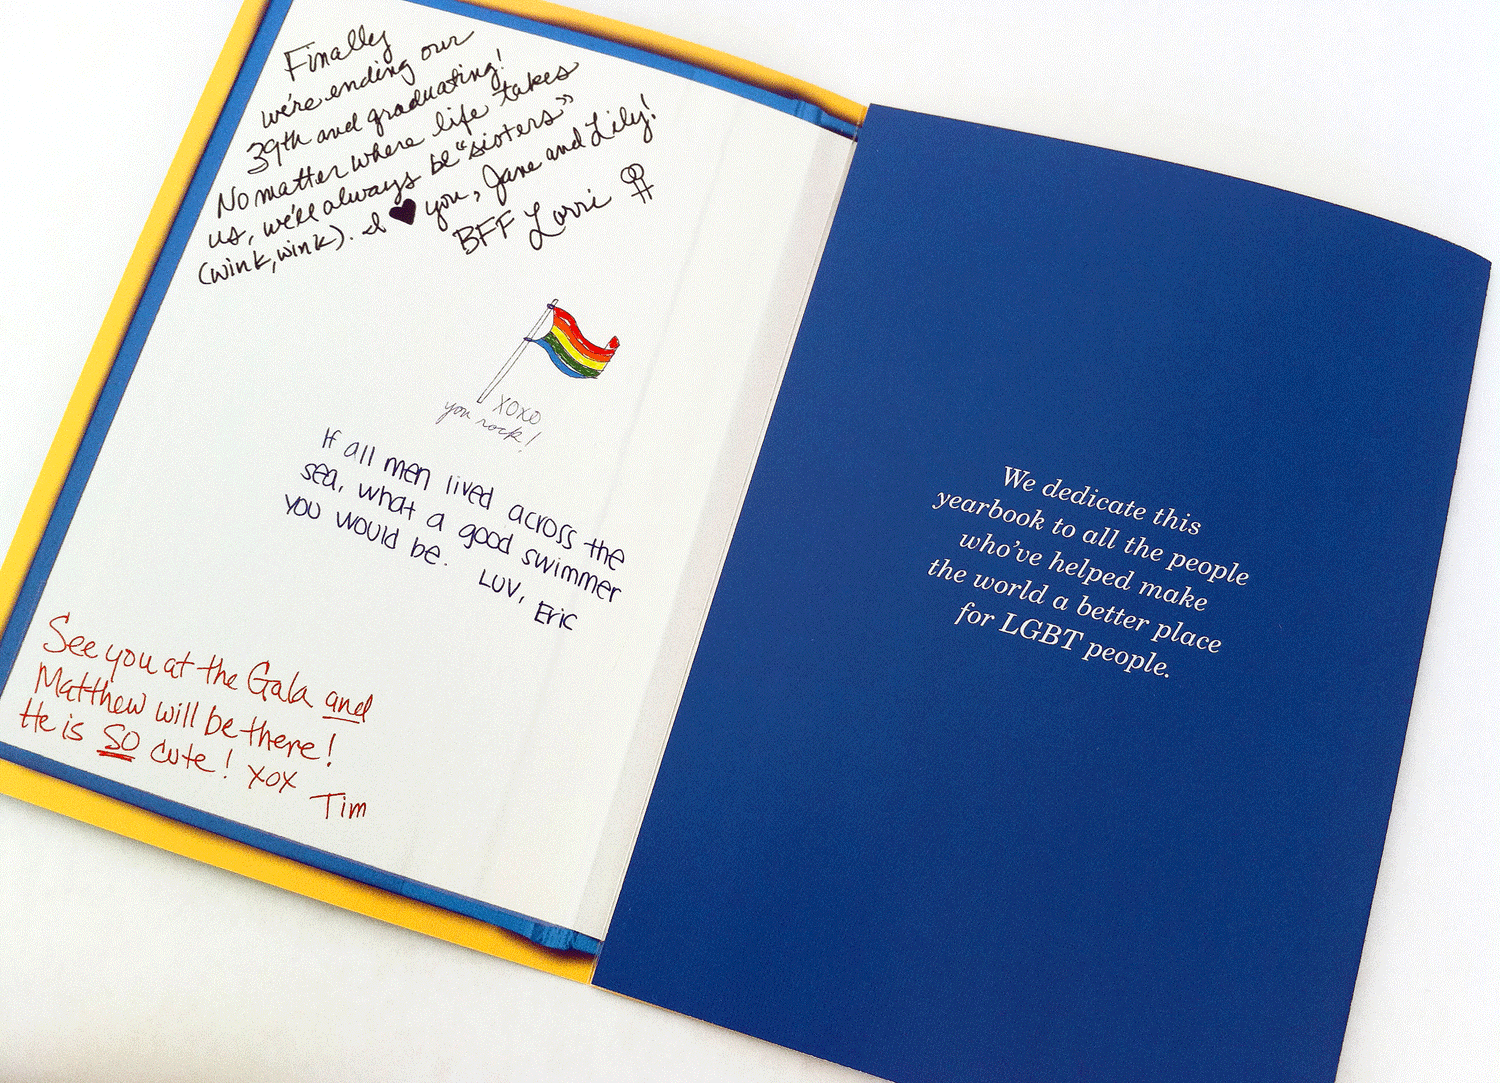 Finally
we're ending our
39th and graduating!
No matter where life takes
us, we'll always be "sisters"
(wink, wink). I ♥ you, Jane and Lily!
BFF Lorri
xoxo
you rock!
If all men lived across the
sea, what a good swimmer
you would be.
LUV, Eric
See you at the Gala and
Matthew will be there!
He is SO cute! xox
Tim
We dedicate this
yearbook to all the people
who've helped make
the world a better place
for LGBT people.